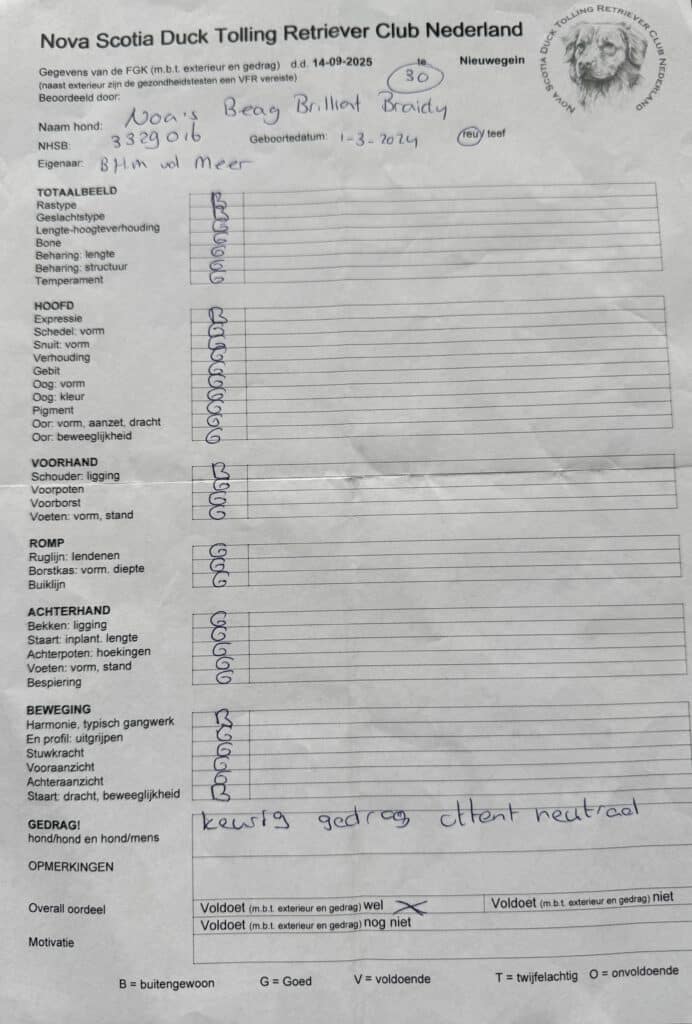 Nova Scotia Duck Tolling Retriever Club Nederland
NOVA SCOTIA DUCK TOLLING RETRIEVER CLUB NEDERLAND
Gegevens van de FGK (m.b.t. exterieur en gedrag) d.d. 14-09-2025 te Nieuwegein
(naast exterieur zijn de gezondheidstesten een VFR vereiste)
30
Beoordeeld door:
Naam hond: Noa's Beag Brillient Braidy
NHSB: 3329016 Geboortedatum: 1-3-2024 reu/ teef
Eigenaar: BHM vd Meer
TOTAALBEELD
Rastype B
Geslachtstype B
Lengte-hoogteverhouding G
Bone G
Beharing: lengte G
Beharing: structuur G
Temperament G
HOOFD
Expressie B
Schedel: vorm G
Snuit: vorm G
Verhouding G
Gebit G
Oog: vorm G
Oog: kleur G
Pigment G
Oor: vorm, aanzet, dracht G
Oor: beweeglijkheid G
VOORHAND
Schouder: ligging B
Voorpoten G
Voorborst G
Voeten: vorm, stand G
ROMP
Ruglijn: lendenen G
Borstkas: vorm. diepte G
Buiklijn G
ACHTERHAND
Bekken: ligging G
Staart: inplant. lengte G
Achterpoten: hoekingen G
Voeten: vorm, stand G
Bespiering G
BEWEGING
Harmonie, typisch gangwerk B
En profil: uitgrijpen G
Stuwkracht G
Vooraanzicht G
Achteraanzicht G
Staart: dracht, beweeglijkheid B
GEDRAG! keurig gedrag attent neutraal
hond/hond en hond/mens
OPMERKINGEN
Overall oordeel Voldoet (m.b.t. exterieur en gedrag) wel X Voldoet (m.b.t. exterieur en gedrag) niet
Voldoet (m.b.t. exterieur en gedrag) nog niet
Motivatie
B = buitengewoon G = Goed V = voldoende T = twijfelachtig O = onvoldoende